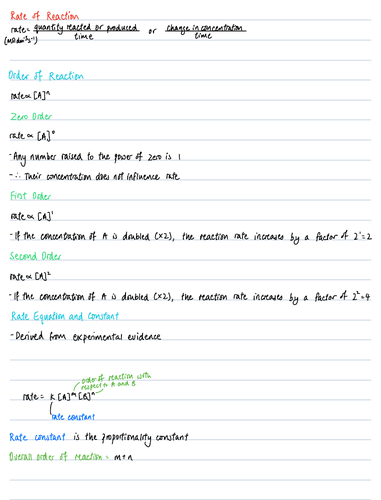 Rate of Reaction
rate = quantity reacted or produced / time or change in concentration / time
(moldm⁻³s⁻¹)
Order of Reaction
rate ∝ [A]ⁿ
Zero Order
rate ∝ [A]⁰
- Any number raised to the power of zero is 1
- ∴ Their concentration does not influence rate
First Order
rate ∝ [A]¹
- If the concentration of A is doubled (×2), the reaction rate increases by a factor of 2¹=2
Second Order
rate ∝ [A]²
- If the concentration of A is doubled (×2), the reaction rate increases by a factor of 2²=4
Rate Equation and Constant
- Derived from experimental evidence
order of reaction with
respect to A and B
rate = k [A]ᵐ [B]ⁿ
rate constant
Rate constant is the proportionality constant
Overall order of reaction = m+n